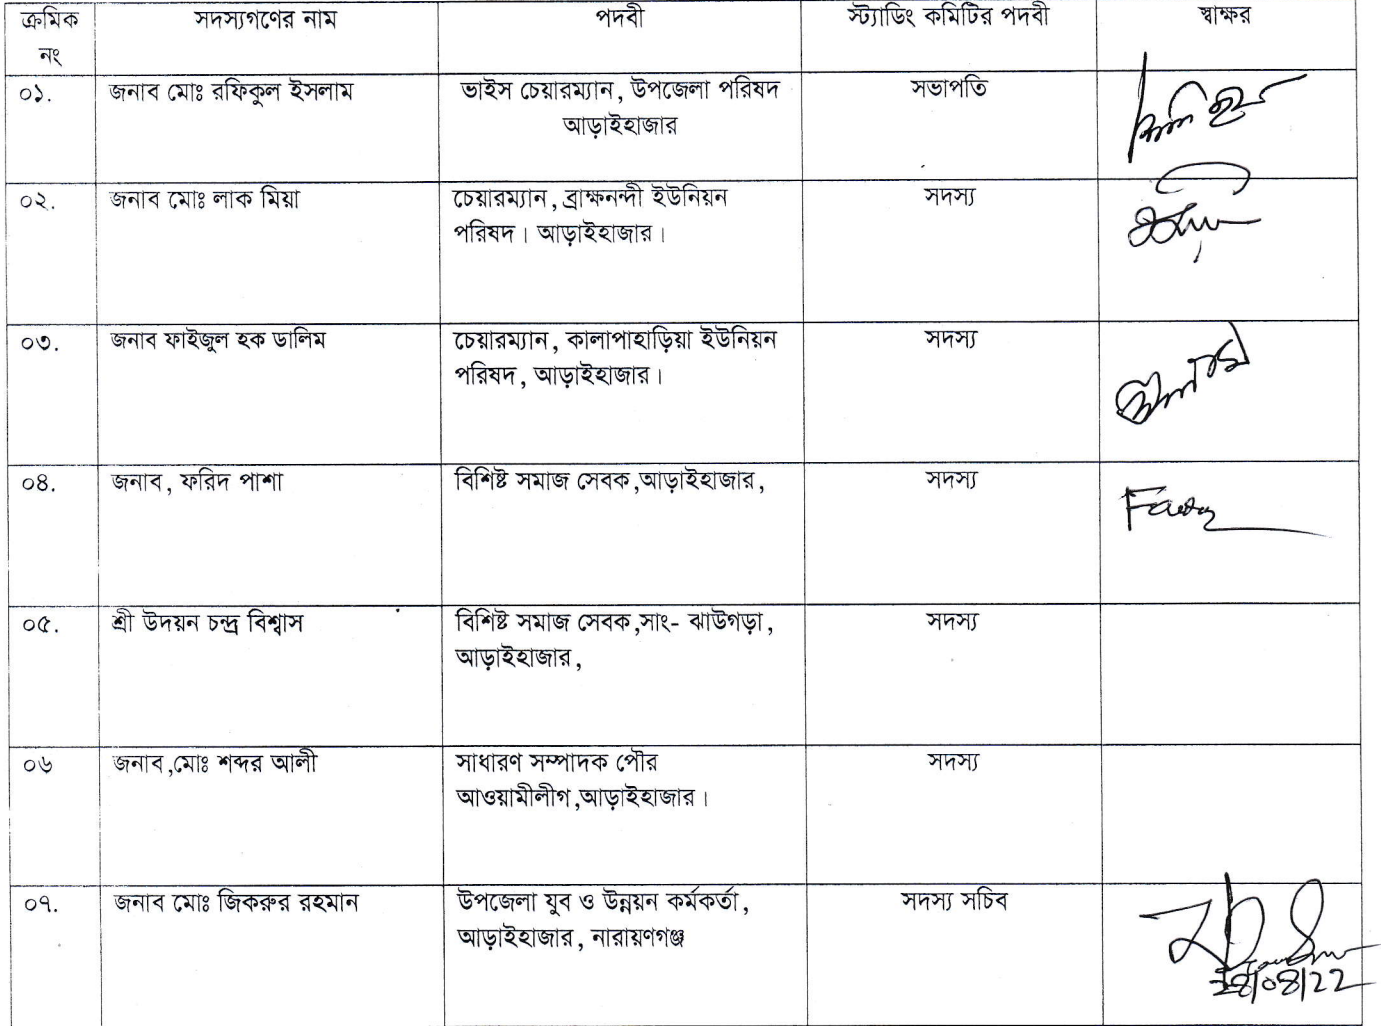 ক্রমিক নং সদস্যগণের নাম পদবী স্ট্যাডিং কমিটির পদবী স্বাক্ষর
০১. জনাব মোঃ রফিকুল ইসলাম ভাইস চেয়ারম্যান, উপজেলা পরিষদ সভাপতি
আড়াইহাজার
০২. জনাব মোঃ লাক মিয়া চেয়ারম্যান, ব্রাক্ষনন্দী ইউনিয়ন সদস্য
পরিষদ। আড়াইহাজার।
০৩. জনাব ফাইজুল হক ডালিম চেয়ারম্যান, কালাপাহাড়িয়া ইউনিয়ন সদস্য
পরিষদ, আড়াইহাজার।
০৪. জনাব, ফরিদ পাশা বিশিষ্ট সমাজ সেবক,আড়াইহাজার, সদস্য
০৫. শ্রী উদয়ন চন্দ্র বিশ্বাস বিশিষ্ট সমাজ সেবক,সাং- ঝাউগড়া, সদস্য
আড়াইহাজার,
০৬ জনাব,মোঃ শব্দর আলী সাধারণ সম্পাদক পৌর সদস্য
আওয়ামীলীগ,আড়াইহাজার।
০৭. জনাব মোঃ জিকরুর রহমান উপজেলা যুব ও উন্নয়ন কর্মকর্তা, সদস্য সচিব
আড়াইহাজার, নারায়ণগঞ্জ
28/08/22